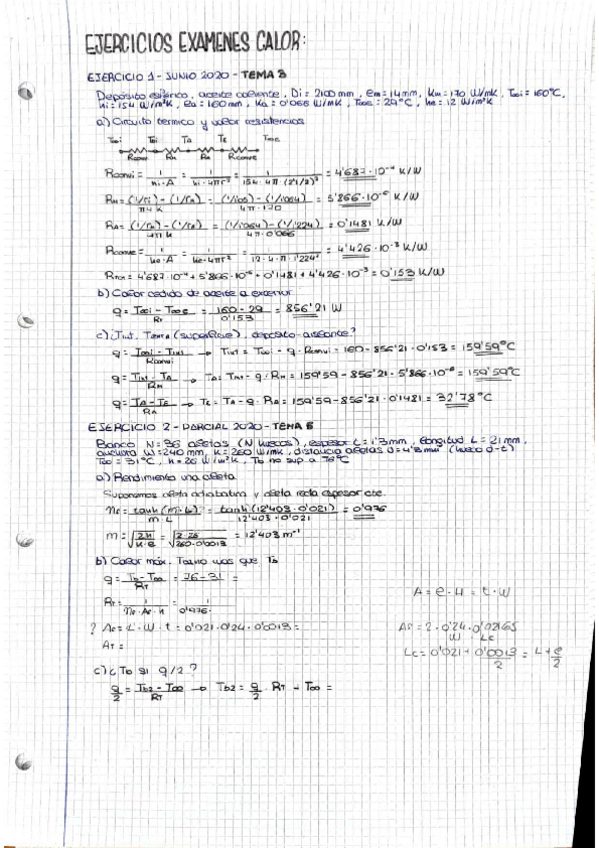 EJERCICIOS EXAMENES CALOR:
EJERCICIO 1 - JUNIO 2020 - TEMA 3
Depósito esférico, aceite caliente, Di = 2100 mm, em = 14 mm, Km = 170 W/mK, T∞i = 160°C,
hi = 154 W/m²K, ea = 160 mm, Ka = 0'066 W/mK, T∞e = 29°C, he = 12 W/m²K
a) Circuito térmico y valor resistencias
T∞i Tsi TA TE T∞e
Rconvi RM RA Rconve
Rconvi = 1/(hi·A) = 1/(hi·4πr²) = 1/(154·4π·(2'1/2)²) = 4'687·10⁻⁴ K/W
RM = ((1/ri) - (1/rM))/(4πK) = ((1/1'05) - (1/1'064))/(4π·170) = 5'866·10⁻⁶ K/W
RA = ((1/rM) - (1/rA))/(4πK) = ((1/1'064) - (1/1'224))/(4π·0'066) = 0'1481 K/W
Rconve = 1/(he·A) = 1/(he·4πr²) = 1/(12·4·π·1'224²) = 4'426·10⁻³ K/W
RTOT = 4'687·10⁻⁴ + 5'866·10⁻⁶ + 0'1481 + 4'426·10⁻³ = 0'153 K/W
b) Calor cedido de aceite a exterior
q = (T∞i - T∞e)/RT = (160 - 29)/0'153 = 856'21 W
c) ¿Tint, (superficie), depósito-aislante?
q = (T∞i - Tint)/Rconvi → Tint = T∞i - q·Rconvi = 160 - 856'21·0'153 = 159'59°C
q = (Tint - TA)/RM → TA = Tint - q·RM = 159'59 - 856'21·5'866·10⁻⁶ = 159'59°C
q = (TA - TE)/RA → TE = TA - q·RA = 159'59 - 856'21·0'1481 = 32'78°C
EJERCICIO 2 - PARCIAL 2020 - TEMA 5
Banco N = 36 aletas (N huecos), espesor t = 1'3 mm, longitud L = 21 mm,
anchura W = 240 mm, K = 260 W/mK, distancia aletas d = 4'8 mm (hueco d-t)
T∞ = 31°C, h = 26 W/m²K, Tb no sup a 76°C
a) Rendimiento una aleta
Suponemos aleta adiabática y aleta recta espesor cte.
ηa = tanh(m·L)/(m·L) = tanh(12'403·0'021)/(12'403·0'021) = 0'976
m = √(2h/(K·e)) = √(2·26/(260·0'0013)) = 12'403 m⁻¹
b) Calor máx. que Tb
q = (Tb - T∞)/RT = 76 - 31 =
A = e·H = t·W
RT = 1/(ηc·Ac·h) = 1/0'976·
? Ac = L·W·t = 0'021·0'24·0'0013 =
Af = 2·0'24·0'02165
W Lc
AT =
Lc = 0'021 + 0'0013/2 = L + e/2
c) ¿Tb si q/2?
q/2 = (Tb2 - T∞)/RT → Tb2 = q/2 · RT + T∞ =